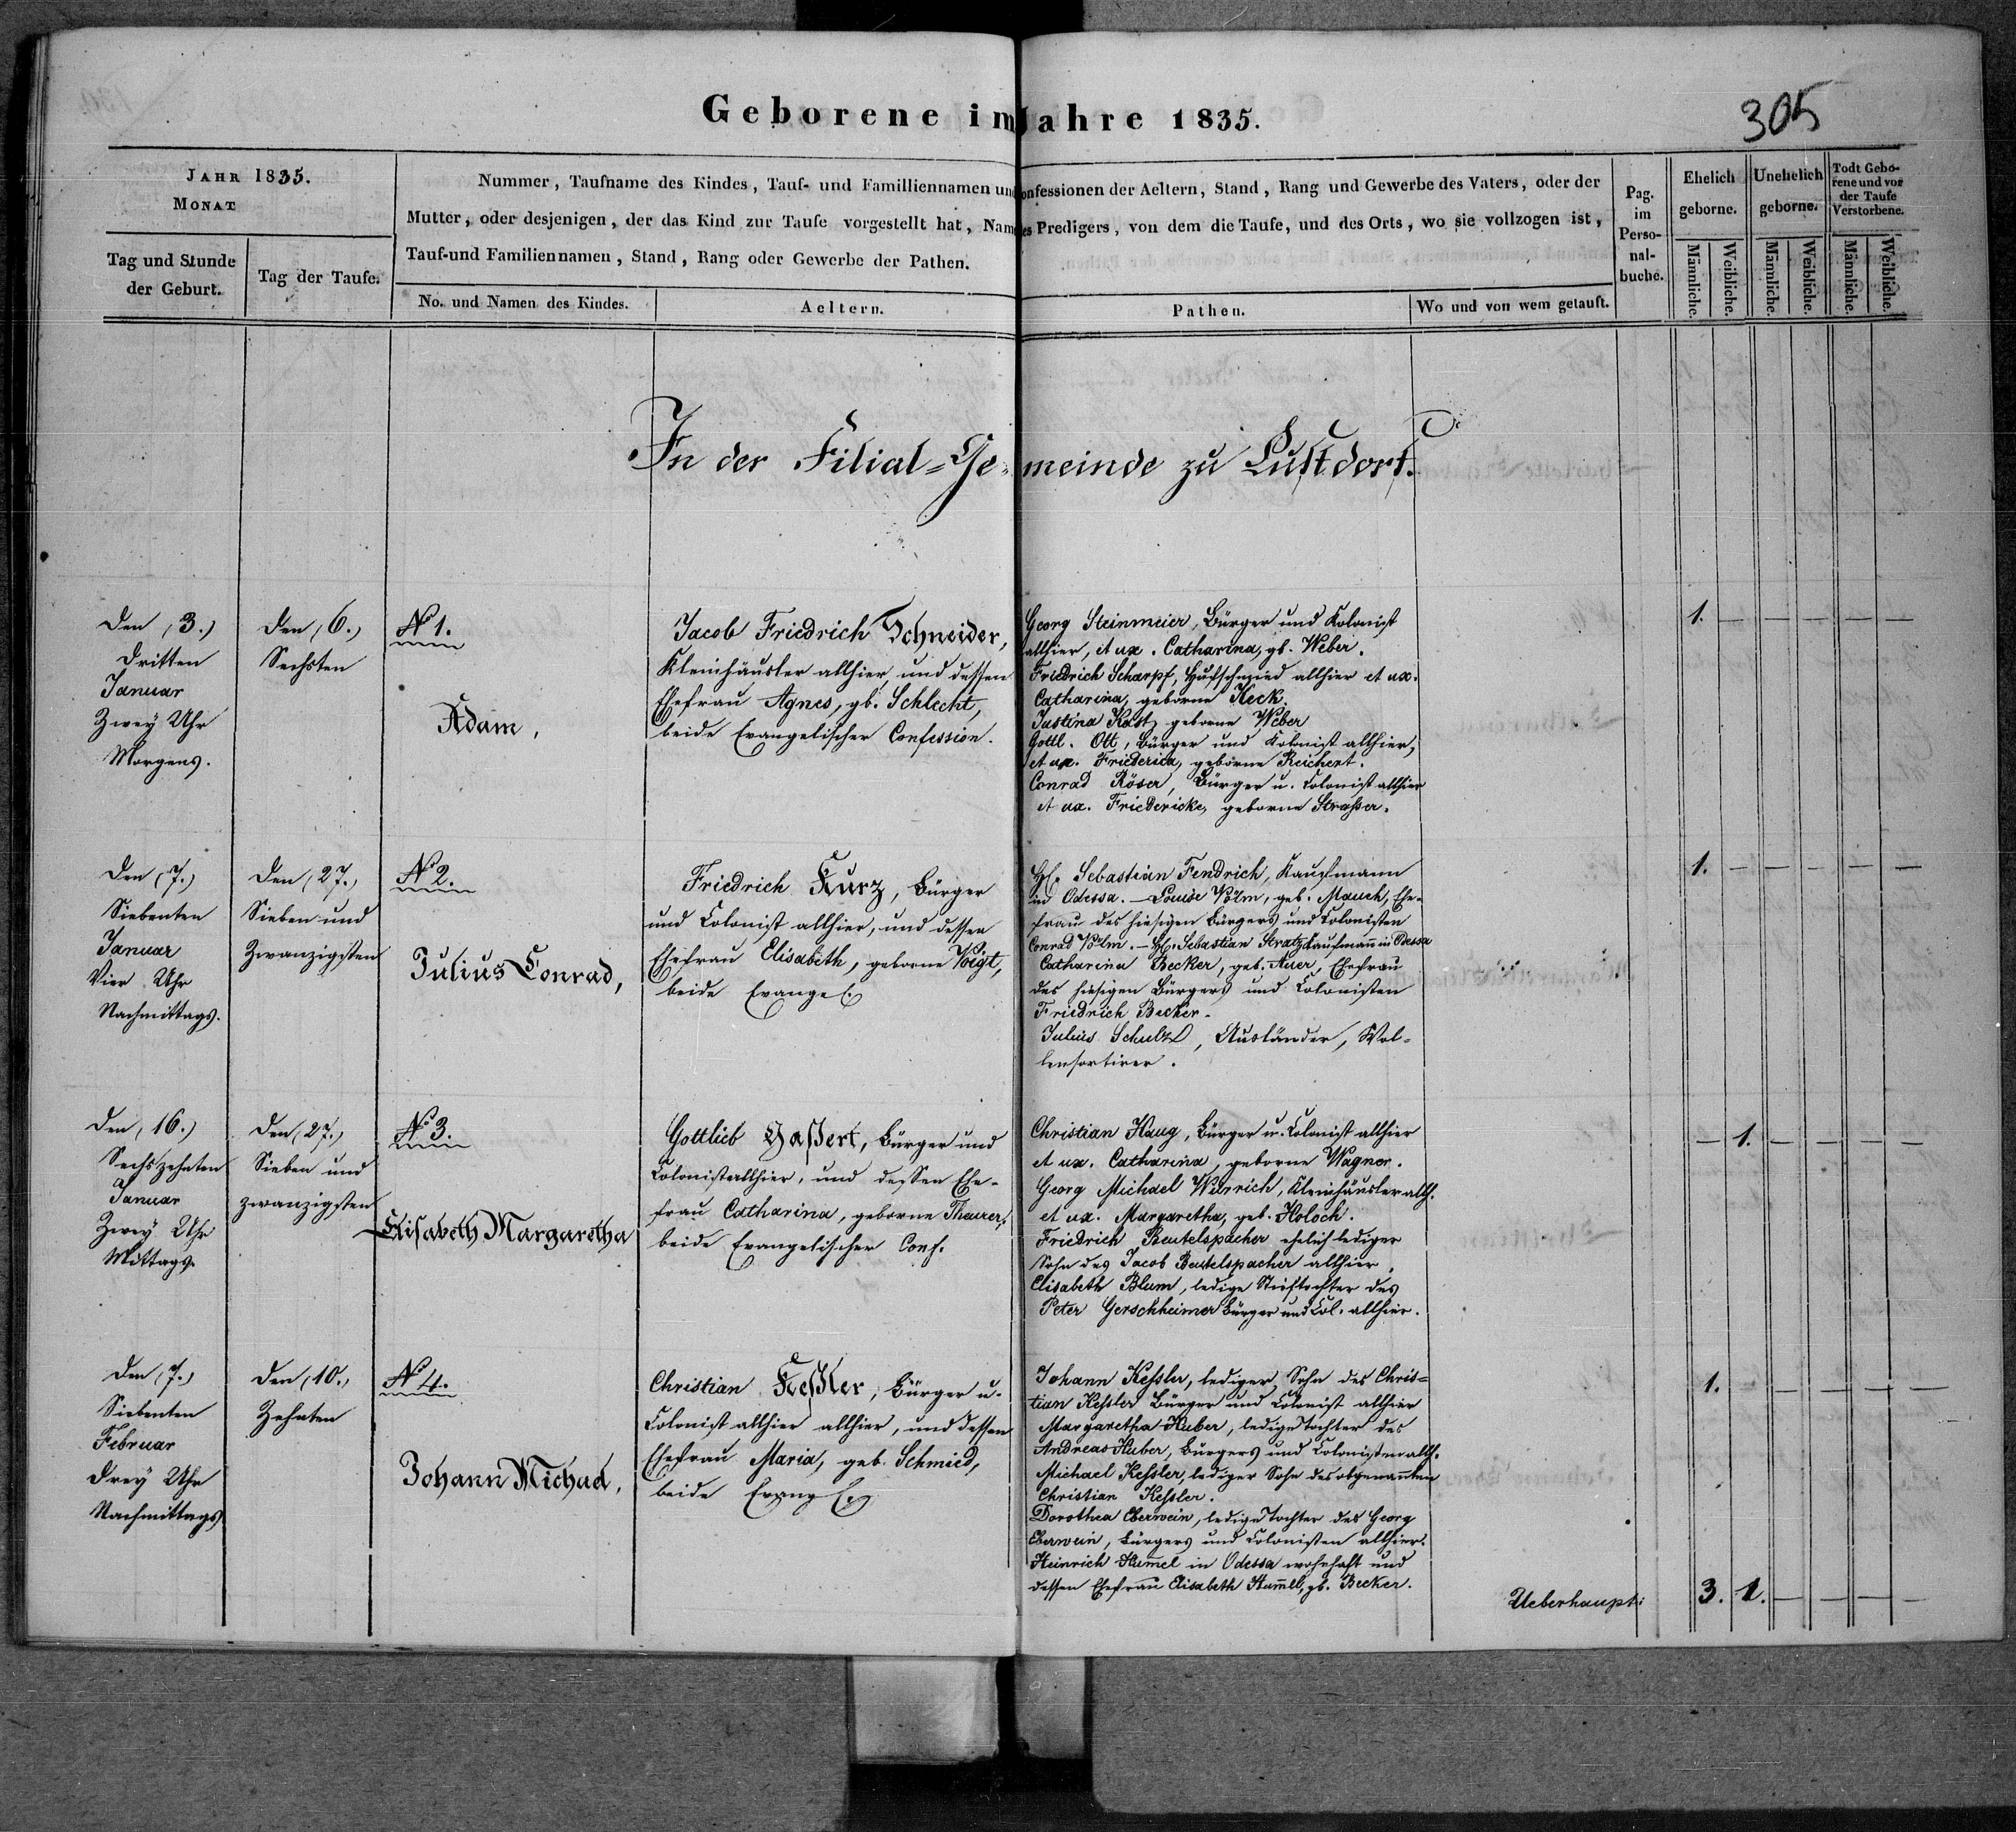 Geborene im Jahre 1835.
305
JAHR 1835.
MONAT
Tag und Stunde
der Geburt.
Tag der Taufe.
Nummer, Taufname des Kindes, Tauf- und Familliennamen und Confessionen der Aeltern, Stand, Rang und Gewerbe des Vaters, oder der
Mutter, oder desjenigen, der das Kind zur Taufe vorgestellt hat, Namen des Predigers, von dem die Taufe, und des Orts, wo sie vollzogen ist,
Tauf-und Familiennamen, Stand, Rang oder Gewerbe der Pathen.
No. und Namen des Kindes.
Aeltern.
Pathen.
Wo und von wem getauft.
Pag.
im
Perso-
nal-
buche.
Ehelich
geborne.
Unehelich
geborne.
Todt Gebo-
rene und vor
der Taufe
Verstorbene.
Männliche.
Weibliche.
Männliche.
Weibliche.
Männliche.
Weibliche.
In der Filial-Ge-meinde zu Lustdorf.
Den (3.)
Dritten
Januar
Zwey Uhr
Morgens.
Den (6.)
Sechsten
No 1.
Adam,
Jacob Friedrich Schneider,
Kleinhäusler allhier und dessen
Ehefrau Agnes, gb. Schlecht,
beide Evangelischer Confession.
Georg Steinmeier, Bürger und Kolonist
allhier, et ux. Catharina, gb. Weber.
Friedrich Scharpf, Hufschmied allhier et ux.
Catharina, geborne Keck.
Justina Kast, geborne Weber
Gottl. Ott, Bürger und Kolonist allhier,
et ux. Friederica, geborne Reichert.
Conrad Röser, Bürger u. Colonist allhier
et ux. Friedericke, geborne Straßer.
1. — — — — —
Den (7.)
Siebenten
Januar
Vier Uhr
Nachmittags.
Den (27.)
Sieben und
Zwanzigsten
No 2.
Julius Conrad,
Friedrich Kurz, Bürger
und Colonist allhier, und dessen
Ehefrau Elisabeth, geborne Voigt,
beide Evangel.
H. Sebastian Fendrich, Kaufmann
in Odessa. — Louise Völm, geb. Mauch, Ehe-
frau des hiesigen Bürgers und Colonisten
Conrad Völm. — H. Sebastian Stratz Kaufmann in Odessa
Catharina Becker, geb. Auer, Ehefrau
des hiesigen Bürgers und Colonisten
Friedrich Becker.
Julius Schulz, Ausländer, Wol-
lensortirer.
1. — — — — —
Den (16.)
Sechszehnten
Januar
Zwey Uhr
Mittags.
Den (27.)
Sieben und
zwanzigsten
No 3.
Elisabeth Margaretha
Gottlieb Haßert, Bürger und
Colonist allhier, und dessen Ehe-
frau Catharina, geborne Theurer,
beide Evangelischer Conf.
Christian Haug, Bürger u. Colonist allhier
et ux. Catharina, geborne Wagner.
Georg Michael, Kleinhäusler allh.
et ux. Margaretha, geb. Holoch.
Friedrich Beutelspacher ehelich lediger
Sohn des Jacob Beutelspacher allhier,
Elisabeth Blum, ledige Stieftochter des
Peter Gerschheimer Bürger und Col. allhier.
— 1. — — — —
Den (7.)
Siebenten
Februar
Drey Uhr
Nachmittags
Den (10.)
Zehnten
No 4.
Johann Michael,
Christian Keßler, Bürger u.
Colonist allhier allhier, und dessen
Ehefrau Maria, geb. Schmied,
beide Evangel.
Johann Keßler, lediger Sohn des Chris-
tian Keßler Bürger und Colonist allhier
Margaretha Huber, ledige Tochter des
Andreas Huber, Bürgers und Colonisten allh.
Michael Keßler, lediger Sohn des obgenannten
Christian Keßler.
Dorothea Eberwein, ledige Tochter des Georg
Eberwein, Bürgers und Colonisten allhier.
Heinrich Hum̅el in Odessa wohnhaft und
dessen Ehefrau Elisabeth Hum̅el, gb. Becker.
1. — — — — —
Ueberhaupt: 3. 1. — — — —